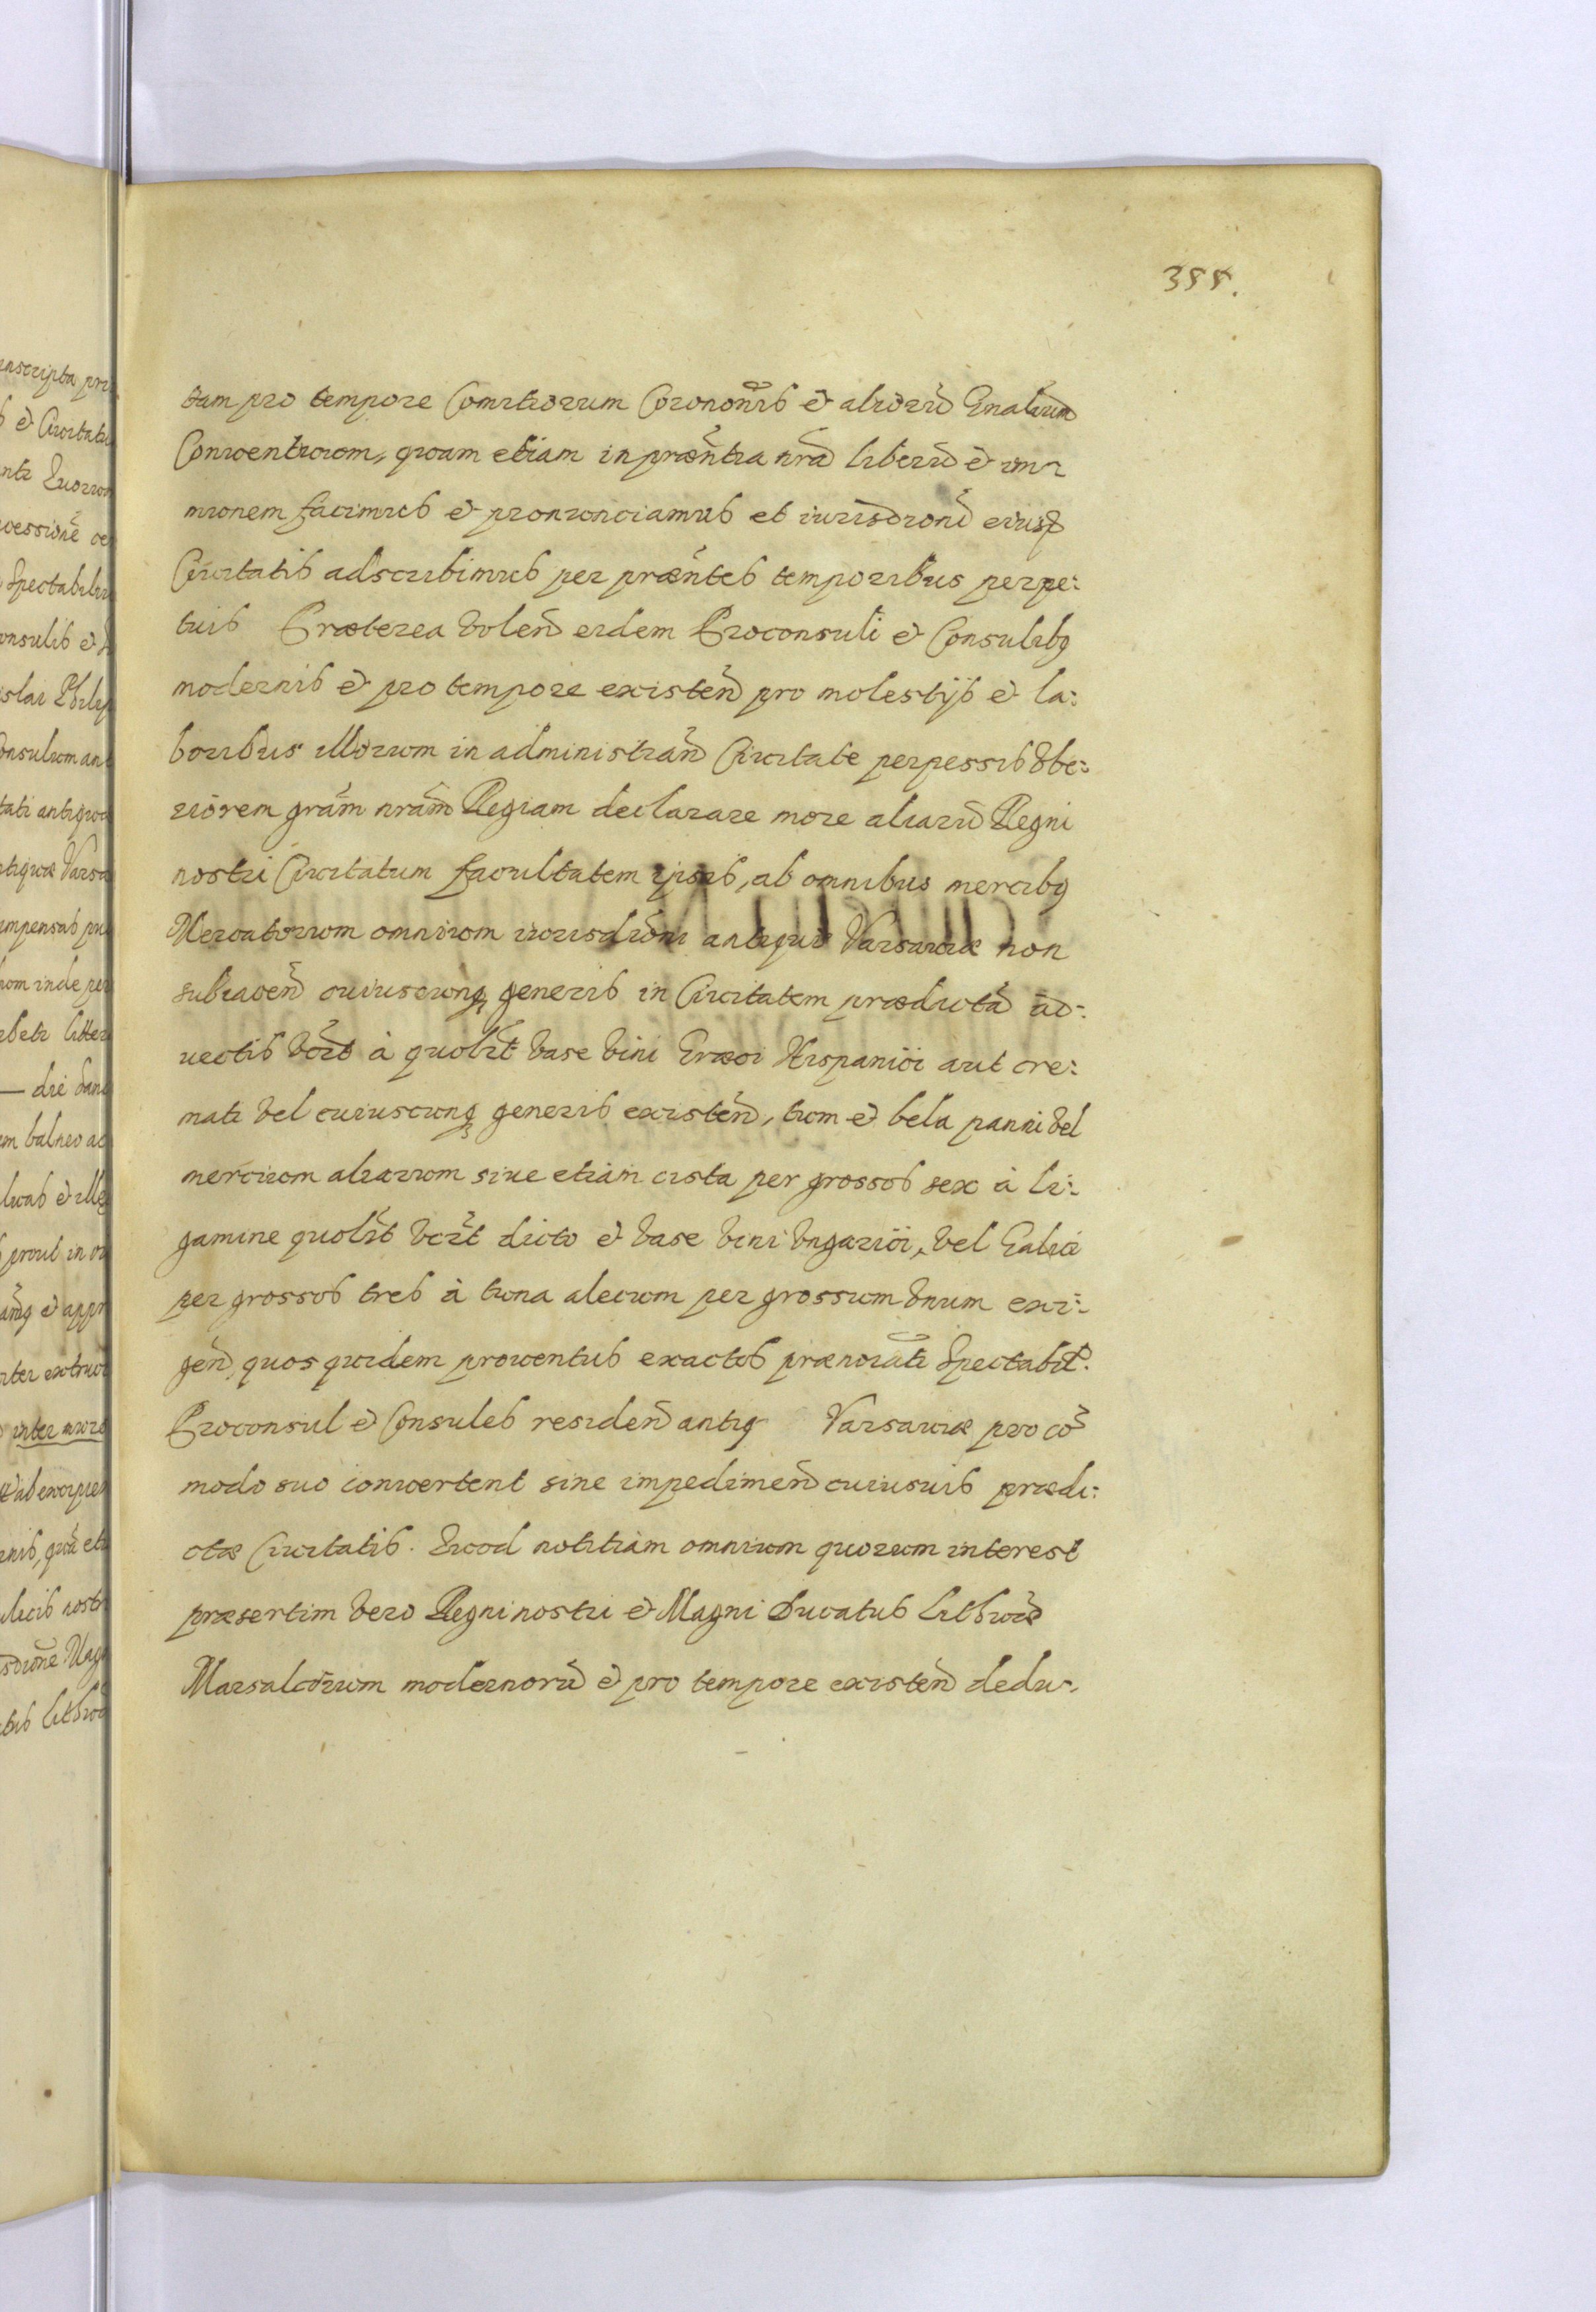 355.
tam pro tempore Comitiorum Coronõnis et aliorũ Gnaliũ
Conuentuum, quam etiam in præñtia nrã liberũ et im-
munem facimus et pronunciamus et iurisdioni eiusd
Ciuitatis adscribimus per præntes temporibus perpe:
tuis Præterea volen eidem Proconsuli et Consulibq
modernis et pro tempore existeñ pro molestijs et la:
boribus illorum in administrañ Ciuitate perpessis vbe:
riorem grãm nrãm Regiam declarare more aliarũ Regni
nostri Ciuitatum facultatem ipsis, ab omnibus mercibq
Mercatorum omnium iurisdioni antiquæ Varsauiæ non
subiacen cuiuscunq generis in Ciuitatem prædictã ad:
uectis vczt à quolzt vase vini Græci Hispanici aut cre:
mati vel cuiuscunq generis existeñ, tum et bela panni vel
mercium aliarum siue etiam cista per grossos sex à li:
gamine quolzt vczt dicto et vase vini vngarici, vel Galici
per grossos tres à tuna alecum per grossum vnum exi:
geñ, quos quidem prouentus exactos prænoiati Spectabil.
Proconsul et Consules residen antiq Varsauiæ pro cõ
modo suo conuertent sine impedimen cuiusuis prædi:
ctæ Ciuitatis. Quod notitiam omnium quorum interest
præsertim vero Regni nostri et Magni Ducatus Lithuaæ
Marsalcorum modernorũ et pro tempore existeñ dedu-